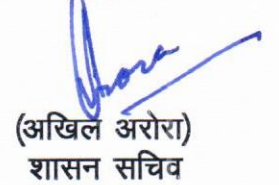 (अखिल अरोरा)
शासन सचिव